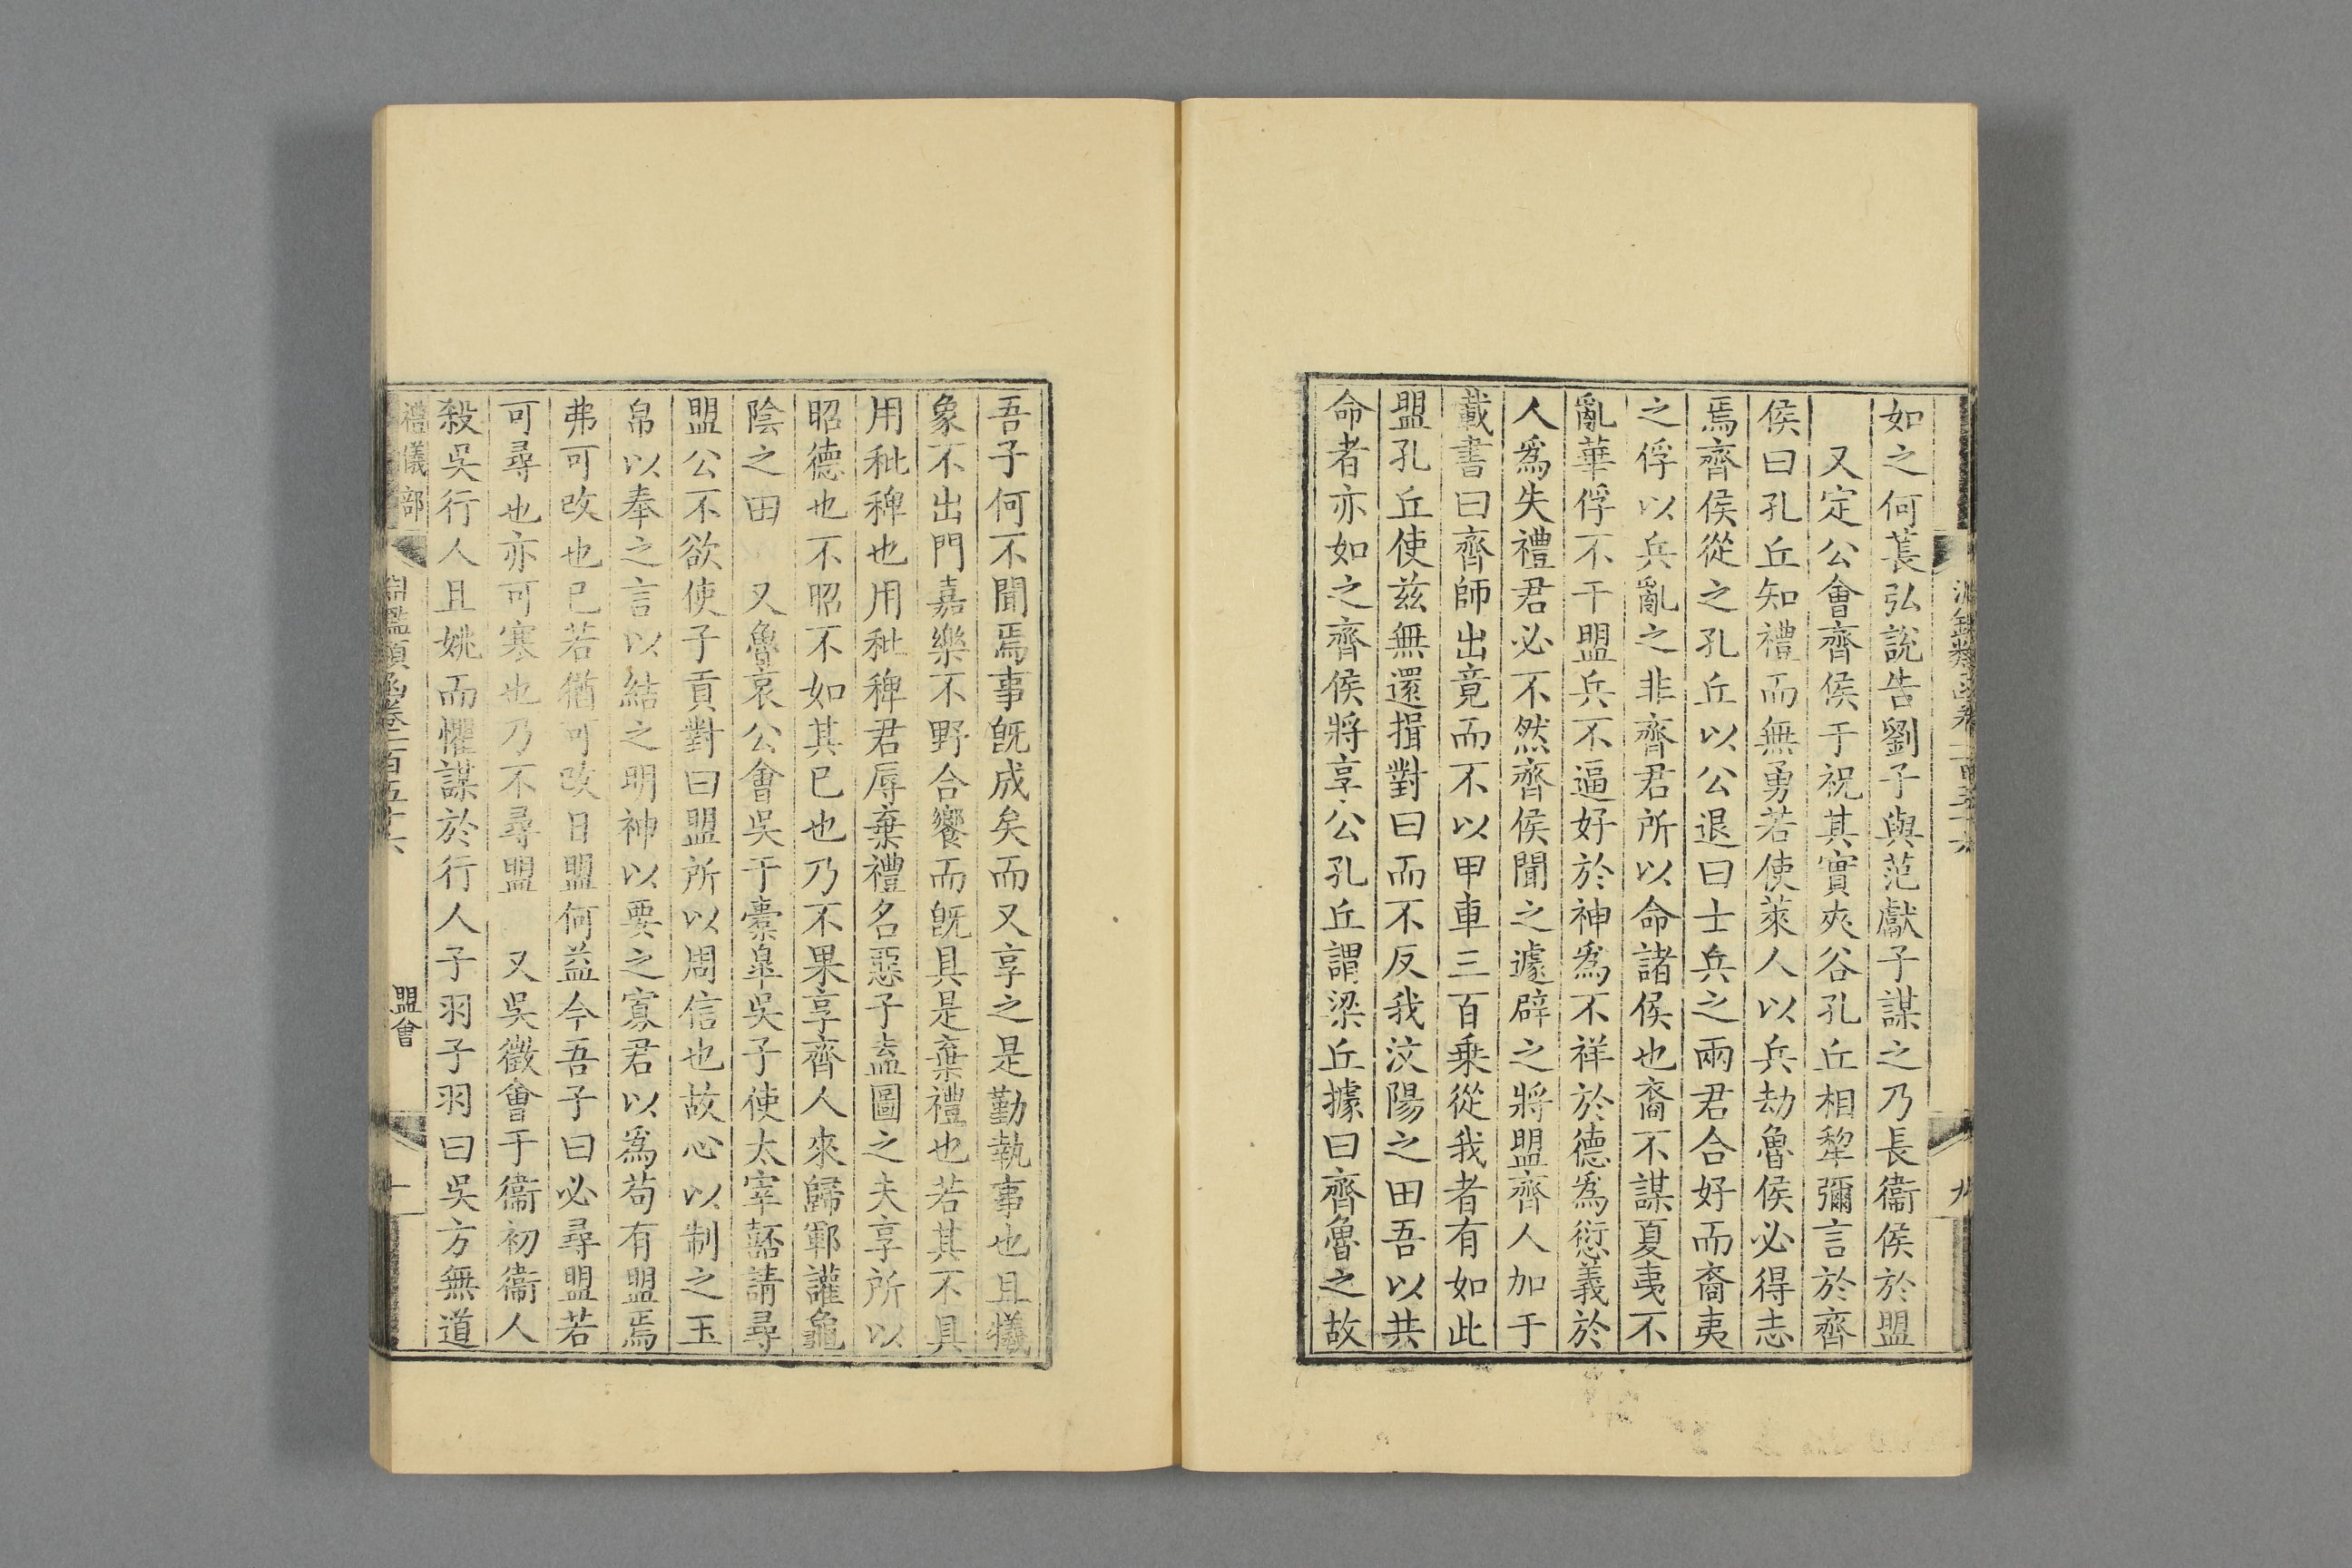 淵鑑類函卷二百五十六
九
如之何萇弘說告劉子與范獻子謀之乃長衞侯於盟
又定公會齊侯于祝其實夾谷孔丘相犂彌言於齊
侯曰孔丘知禮而無勇若使萊人以兵劫魯侯必得志
焉齊侯從之孔丘以公退曰士兵之兩君合好而裔夷
之俘以兵亂之非齊君所以命諸侯也裔不謀夏夷不
亂華俘不干盟兵不逼好於神爲不祥於德爲愆義於
人爲失禮君必不然齊侯聞之遽辟之將盟齊人加于
載書曰齊師出竟而不以甲車三百乗從我者有如此
盟孔丘使兹無還揖對曰而不反我汶陽之田吾以共
命者亦如之齊侯將享公孔丘謂梁丘據曰齊魯之故
吾子何不聞焉事旣成矣而又享之是勤執事也且犧
象不出門嘉樂不野合饗而旣具是棄禮也若其不具
用秕稗也用秕稗君辱棄禮名惡子盍圖之夫享所以
昭德也不昭不如其已也乃不果享齊人來歸鄆讙龜
陰之田 又魯哀公會吳于橐臯吳子使太宰嚭請尋
盟公不欲使子貢對曰盟所以周信也故心以制之玉
帛以奉之言以結之明神以要之寡君以爲苟有盟焉
弗可改也已若猶可改日盟何益今吾子曰必尋盟若
可尋也亦可寒也乃不尋盟 又吳徵會于衞初衞人
殺吳行人且姚而懼謀於行人子羽子羽曰吳方無道
禮儀部
淵鑑類函卷二百五十六
盟會
十